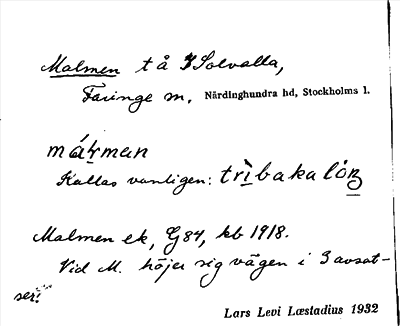 Malmen t å Solvalla,
Faringe sn, Närdinghundra hd, Stockholms l.
máɫman
Kallas vanligen: trìbakalóṉ
Malmen ek, G84, kb 1918.
Vid M. höjer sig vägen i 3 avsat-
ser.
Lars Levi Læstadius 1932